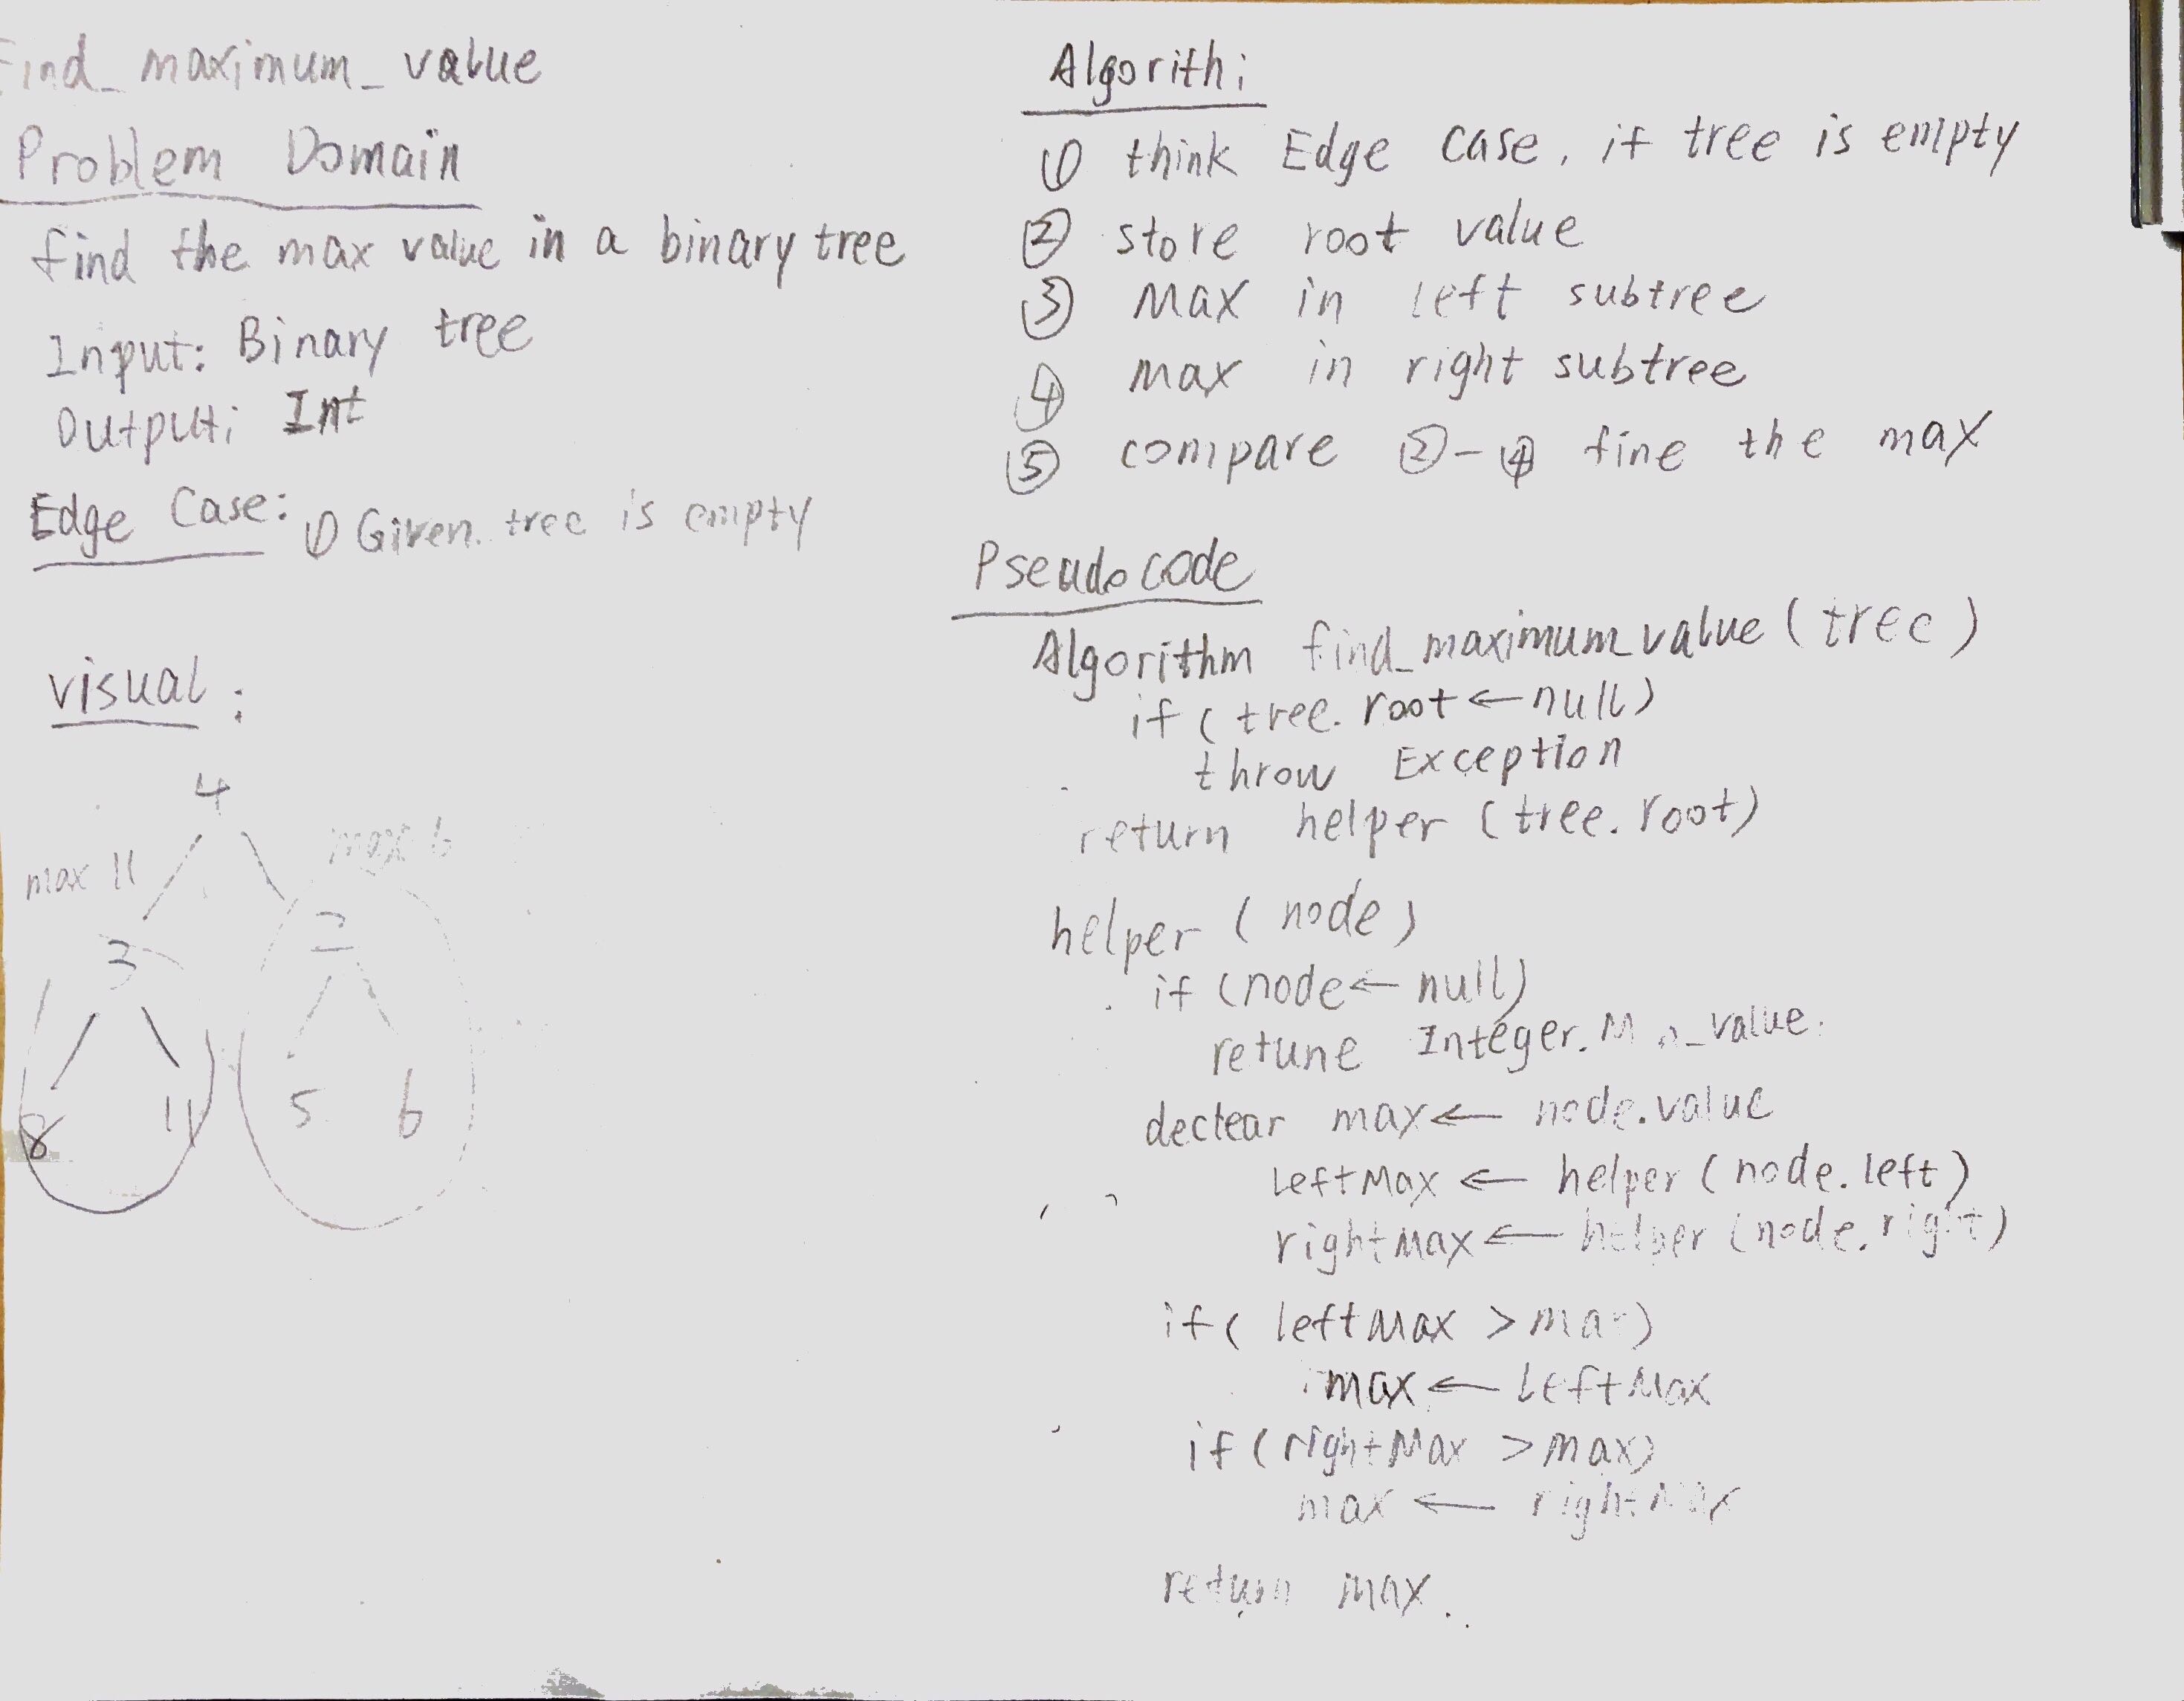 Find_maximum_value
Problem Domain
find the max value in a binary tree
Input: Binary tree
Output: Int
Edge Case: ① Given tree is empty
visual:
4
max 11
max 6
3
2
8
11
5
6
Algorith:
① think Edge Case, if tree is empty
② store root value
③ Max in left subtree
④ max in right subtree
⑤ compare ②-④ fine the max
Pseudo code
Algorithm find_maximum_value (tree)
if (tree.root ← null)
throw Exception
return helper (tree.root)
helper (node)
if (node ← null)
retune Integer.Min_value.
declear max ← node.value
leftMax ← helper (node.left)
rightMax ← helper (node.right)
if (leftMax > max)
max ← leftMax
if (rightMax > max)
max ← rightMax
return max.